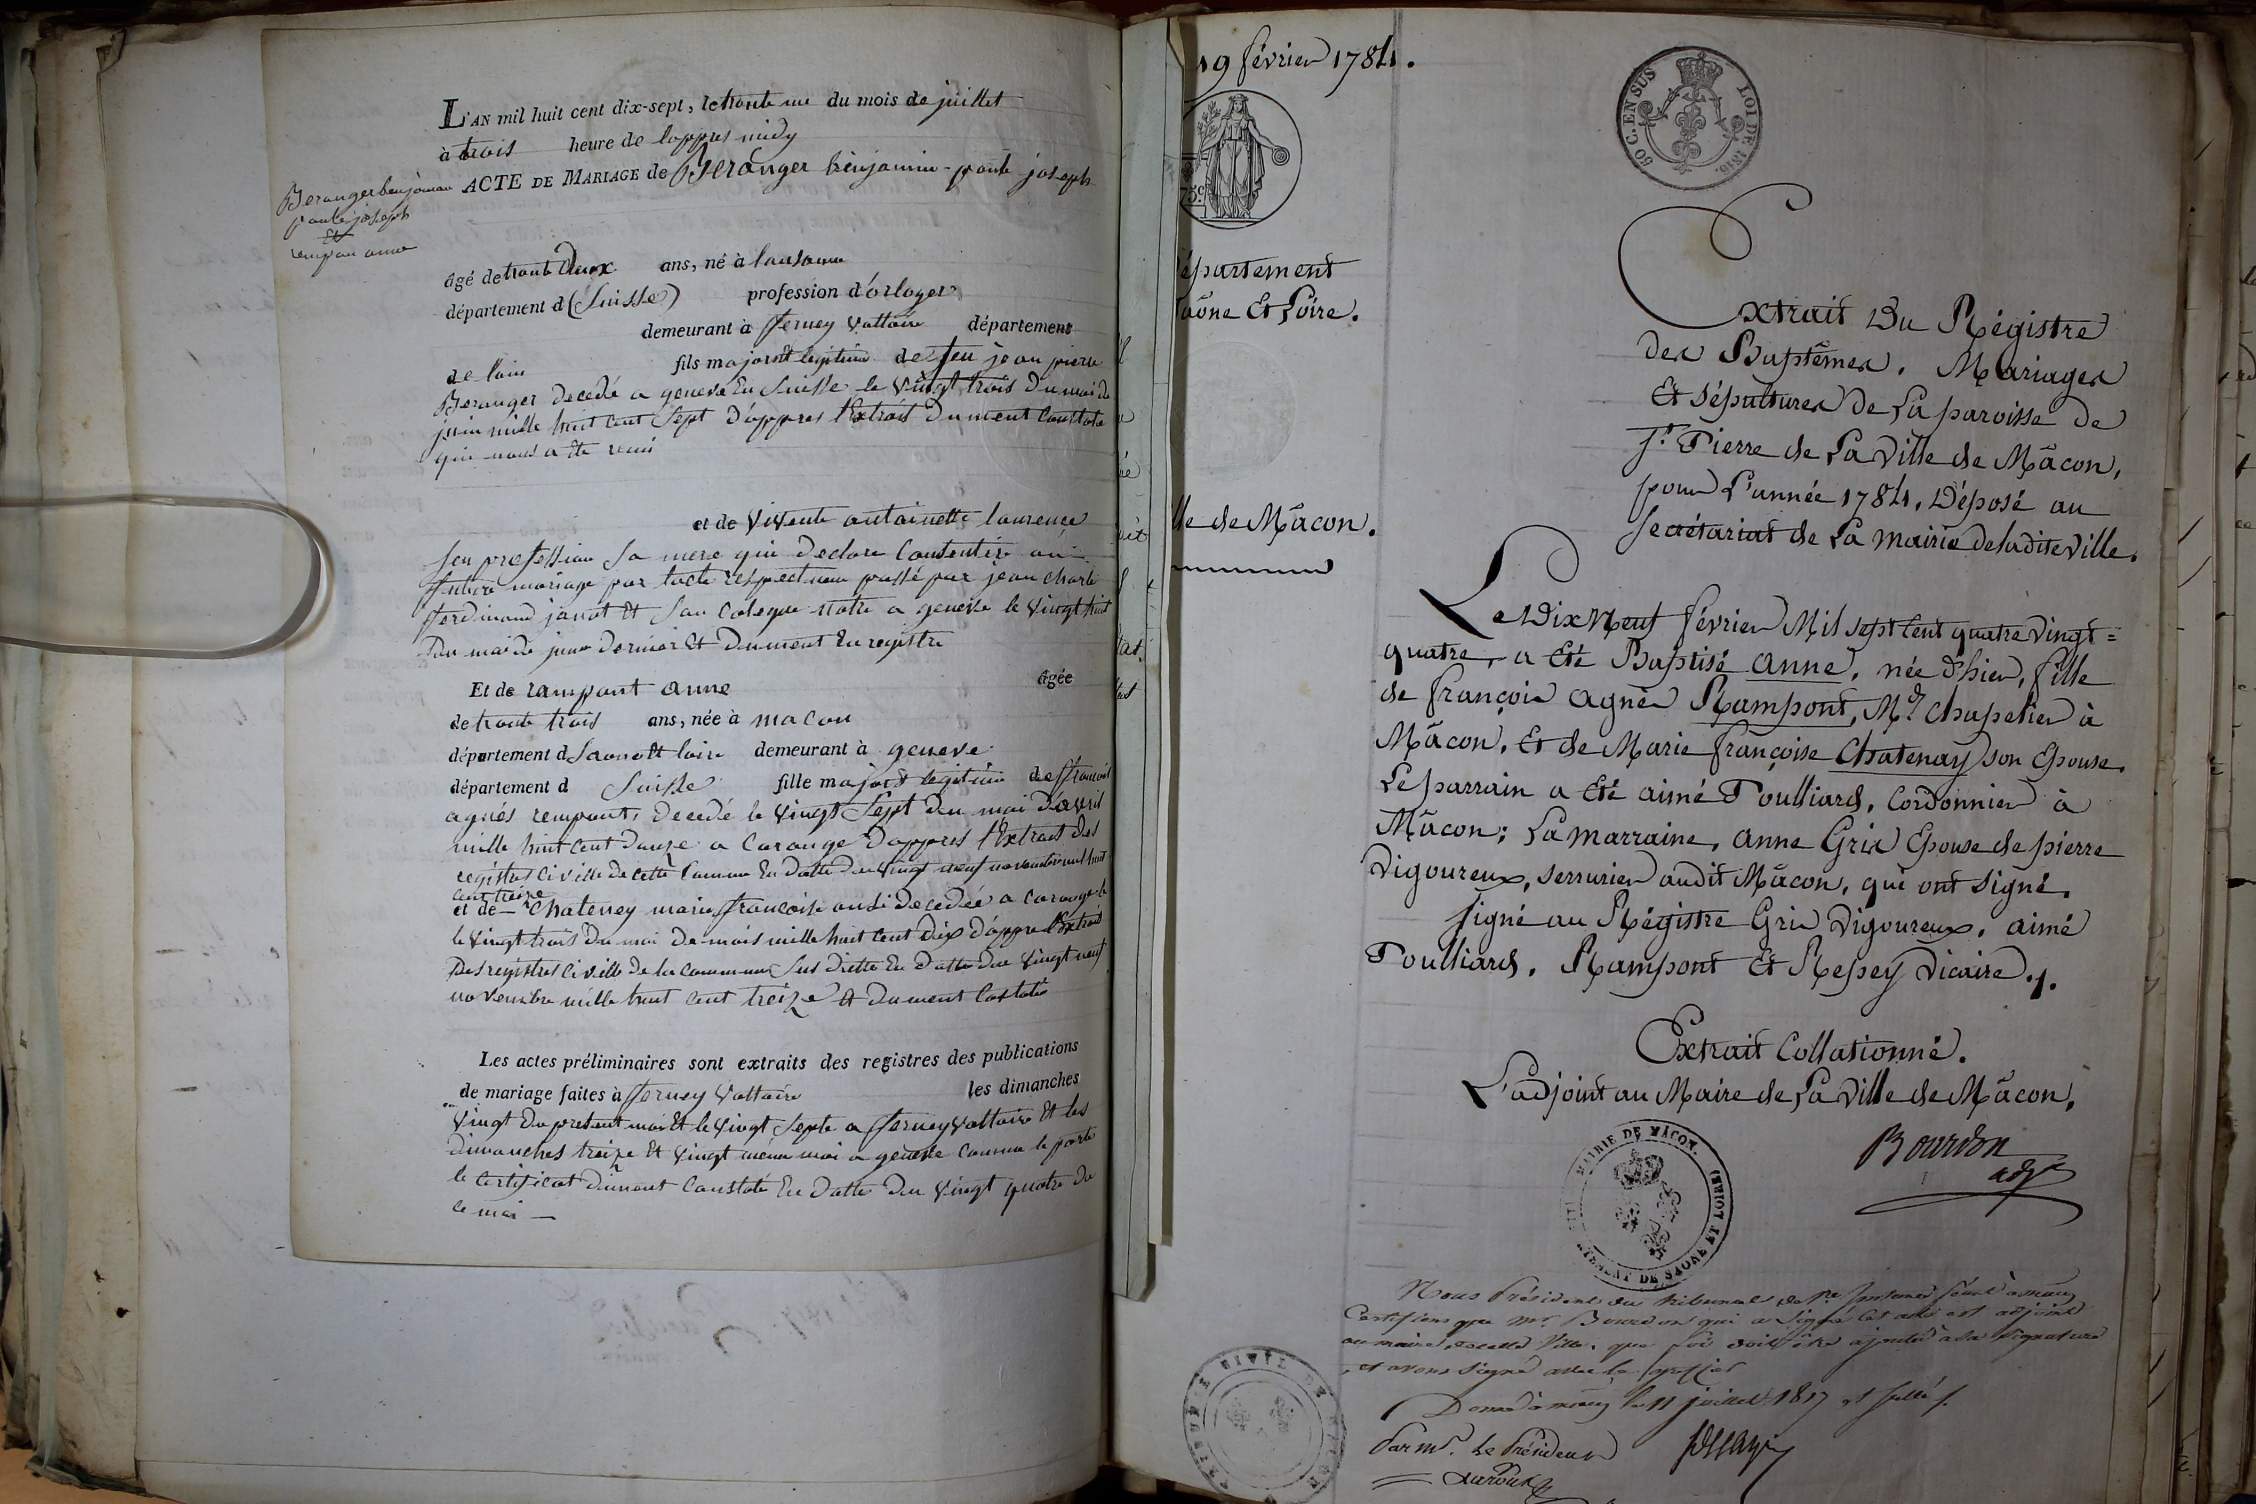 L'AN mil huit cent dix-sept, le trante une du mois de juillet
à trois heure de lappres midy
ACTE DE MARIAGE de Beranger benjamin-paule joseph
Beranger benjamin
paule joseph
Et
rempau anne
âgé de trante deux ans, né à lausanne
département d (Suisse) profession d'orloger
demeurant à fferney Valtaire département
de lain fils majeur et legitime de feu jean pierre
Beranger decedé a geneve En Suisse le Vingt trois du mai de
juin mille huit cent Sept d'appres l'Extrait dument Constate
qui nous a ete remi
et de Vivente antoinette laurence
sen profession Sa mere qui Declare Consentire au
ffuture mariage par lacte respectueu passé par jean charle
fferdinand janot Et Son Colegue notre a geneve le Vingt huit
Du mai de juin dernier Et Dument En registre
Et de rampont anne âgée
de trante trois ans, née à macon
département d Saone Et loire demeurant à geneve
département d Suisse fille majeur Et legitime de ffrancoi
agnés rempont, Decedé le Vingt Sept du mai d'avril
mille huit cent douze a Carouge D'appres l'Extrait des
registres Civille de cette Commune En Datte du Vingt neuf novembre mil huit
cent treize
et de Chateney marie ffrancoise ausi Decedée a Carouge le
le Vingt trois du mai De mars mille huit cent dix d'appre l'Extrait
Des registres Civille de la commune Sus Ditte En Datte du Vingt neuf
novembre mille huit cent treize Et Dument Costate
Les actes préliminaires sont extraits des registres des publications
de mariage faites à fferney Valtaire les dimanches
Vingt Du present mai Et le Vingt Septe a fferney Valtaire Et les
dimanches treize Et Vingt meme mai a geneve Comme le porte
le Certificat dument Constaté En Datte du Vingt quatre de
ce mai
19 février 1784.
75c
épartement
aône Et Loire.
lle de Mâcon.
50 C. EN SUS LOI DE 1816.
Extrait Du Régistre
des Baptêmes, Mariages
Et Sépultures de La paroisse de
St. Pierre de La Ville de Mâcon,
pour L'année 1784, Déposé au
Secrétariat de La Mairie de ladite ville.
Le Dix Neuf février Mil sept Cent quatre Vingt=
quatre, a Eté Baptisé Anne, née d'hier, fille
de françois Agnès Rampont, Md. Chapelier à
Mâcon, Et de Marie françoise Chatenay son Epouse.
Le parrain a Eté aimé Toulliard, Cordonnier à
Mâcon; La Marraine, Anne Gris Epouse de pierre
Vigoureux, serrurier audit Mâcon, qui ont signé.
Signé au Régistre Gris Vigoureux, aimé
Toulliard, Rampont Et Repey Vicaire.
Extrait Collationné.
L'adjoint au Maire de La Ville de Mâcon,
Bourdon
adjt
MAIRIE DE MÂCON.
DE SAONE ET LOIRE
Nous Président du tribunal de 1re Instance Séant à macon
Certifions que Mr. Bourdon qui a Signé Cet acte est adjoint
au maire de cette Ville, que foi doit être ajoutée à sa Signature
et avons Signé avec le greffier
Donné à macon le 11 juillet 1817
Par Mr. Le Président
CIVIL DE